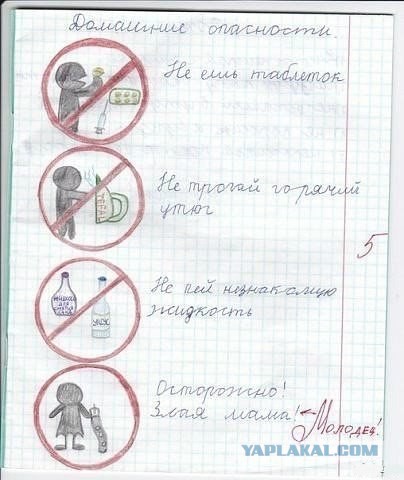 Домашние опасности.
Не ешь таблеток
Не трогай горячий
утюг
TEFAL
5
Не пей незнакомую
жидкость
УКСУС
Осторожно!
Злая мама!
Молодец!
YAPLAKAL.COM